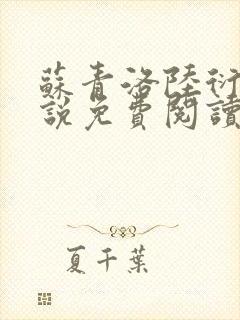 蘇青洛陸衍
說免費閱讀
夏千葉